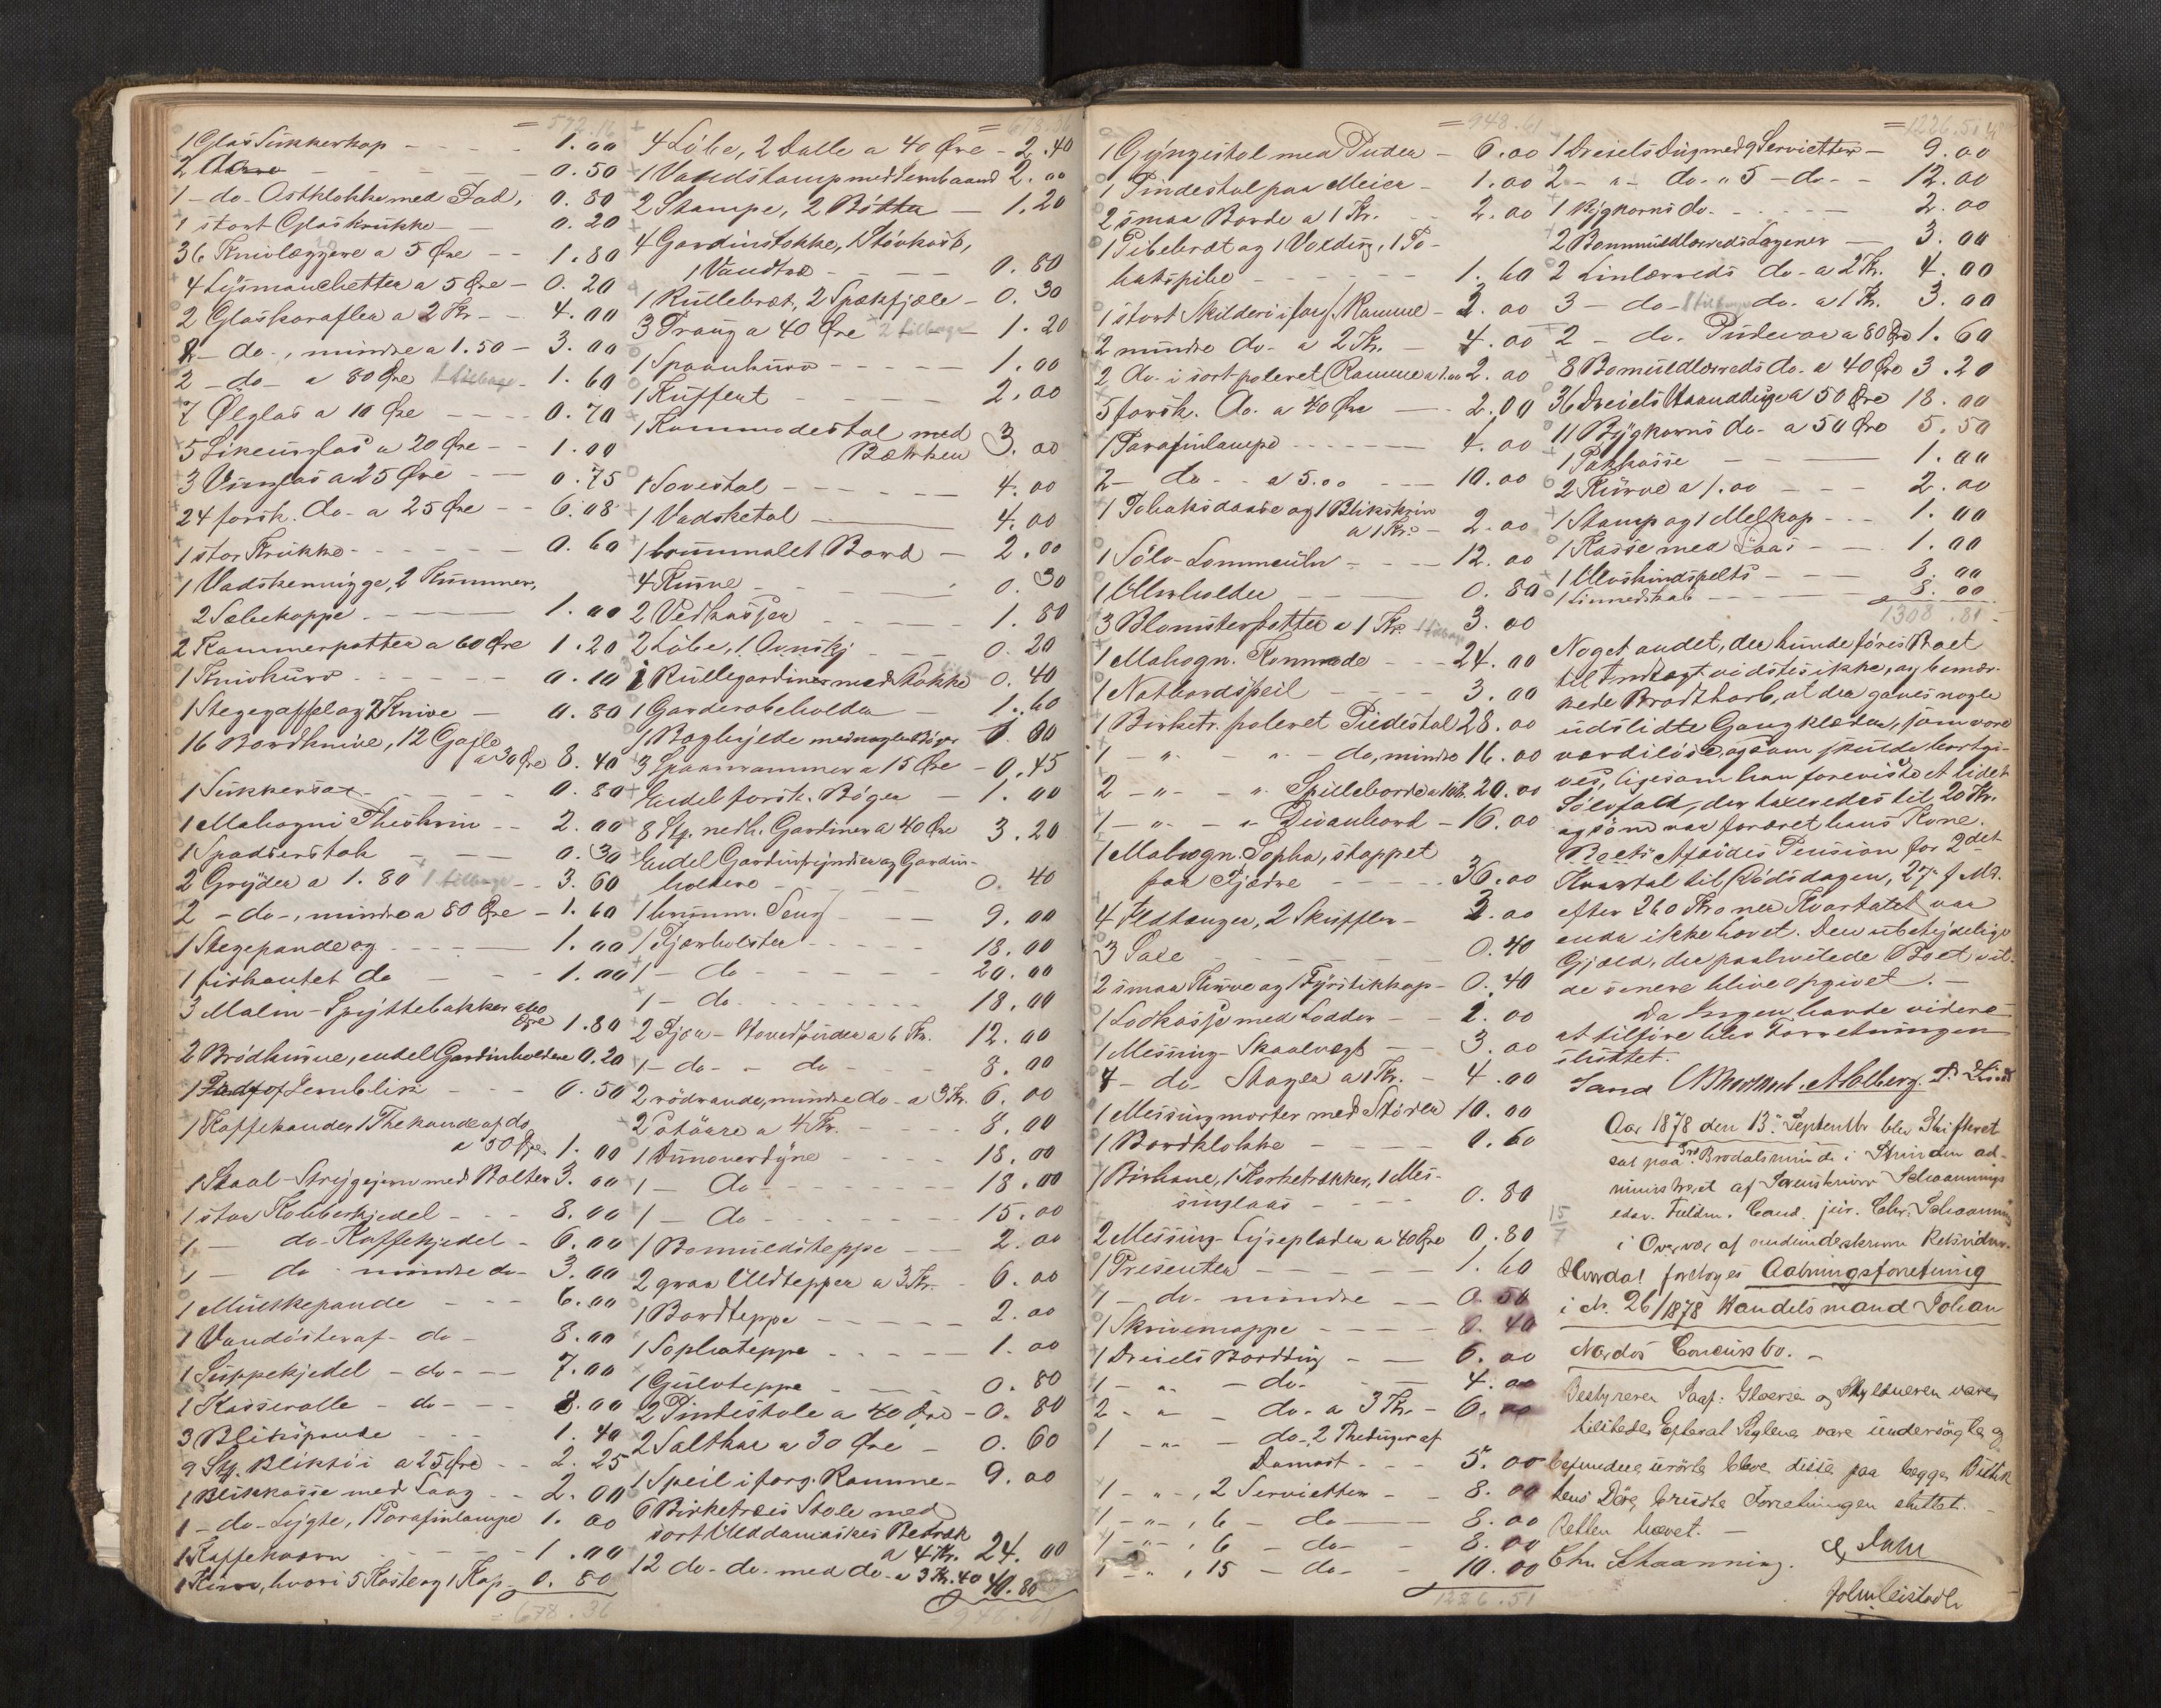 = 572.16
1 Glas Sukkerkop - - - - 1.00
2 - - - - 0.50
1 - do - Ostklokke med Fad, 0.80
1 stort Glaskrukke - - 0.20
36 Knivlæggere a 5 Øre - - 1.80
4 Lysmanchetter a 5 Øre - 0.20
2 Glaskarafler a 2 Kr. - - 4.00
2 - do -, mindre a 1.50 - 3.00
2 - do - a 80 Øre 1 tilbage - 1.60
7 Ølglas a 10 Øre - - - - 0.70
5 Likeurglas a 20 Øre - - 1.00
3 Vinglas a 25 Øre - - 0.75
24 forsk. do - a 25 Øre - - 6.08
1 stor Krukke - - - - - 0.60
1 Vadskemugge, 2 Kummer,
2 Sæbekoppe - - - 1.00
2 Kammerpotter a 60 Øre 1.20
1 Knivkurv - - - - - 0.10
1 Stegegaffel og 2 Knive - 0.80
16 Bordknive, 12 Gafle
a 30 Øre 8.40
1 Sukkersax - - - - - 0.80
1 Mahogni Theskrin - - 2.00
1 Spadserstok - - - 0.30
2 Gryder a 1.80 1 tilbage - - 3.60
2 - do -, mindre a 80 Øre - 1.60
1 Stegepande og - - - - 1.00
1 firkantet do - - - 1.00
3 Malm - Spyttebakker a 60
Øre 1.80
2 Brödkurve, endel Gardinholdere 0.20
1 Fad af Jernblik - - - 0.50
1 Kaffekande, 1 Thekande af do
a 50 Øre 1.00
1 Staal - Strygejern med Bolter 3.00
1 stor Kobberkjedel - - - 8.00
1 - do - Kaffekjedel - 6.00
1 - do - mindre do - 3.00
1 Multekepande - - - 6.00
1 Vandöster af - do - 8.00
1 Suppekjedel - do - - 7.00
1 Kasserolle - do - - - 8.00
3 Blikspande - - - 1.40
9 Stk. Bliktöi a 25 Øre - - 2.25
1 Blikkasse med Laag - - 2.00
1 - do - Lygte, 1 Parafinlampe 1.00
1 Kaffekværn - - - - 1.00
1 Kurv, hvori 5 Koster og 1 Kop - 0.80
= 678.36
= 678.36
4 Löbe, 2 Dalle a 40 Øre - 2.40
1 Vandstamp med Jernbaand 2.00
2 Stampe, 2 Bötter - 1.20
4 Gardinstokke, 1 Stövkost,
1 Vandtræ - - - - - 0.80
1 Rullebræt, 2 Spækfjæle - 0.30
3 Traug a 40 Øre 2 tilbage - 1.20
1 Spaankurv - - - - - 1.00
1 Kuffert - - - - - 2.00
1 Kommodestol med
Bækken 3.00
1 Sovestol - - - - - - 4.00
1 Vadsketol - - - 4.00
1 brunmalet Bord - 2.00
4 Kurve - - - - 0.30
2 Vedkasser - - - - 1.80
2 Löbe, 1 Ovnskj - - - 0.20
2 Rullegardiner med Stokke 0.40
1 Garderobeholder - 1.60
1 Boghylde med nogle Böger 1.00
3 Spaanrammer a 15 Øre - 0.45
Endel forsk. Böger - 1.00
8 Stk. nedh. Gardiner a 40 Øre 3.20
Endel Gardinfryndser og Gardin-
holdere - - - - - - 0.40
1 brunm. Seng - - - 9.00
1 Fjærbolster - - - - - 18.00
1 - do - - - - - - - 20.00
1 - do - - - - - - - 18.00
2 Fjær - Hovedpuder a 6 Kr. 12.00
1 - do - - do - - - - 8.00
2 rödrandede, mindre do - a 3 Kr. 6.00
2 a 4 Kr. - - - - 8.00
1 Dunoverdyne - - - - 18.00
1 - do - - - - - - - 18.00
1 - do - - - - - - - 15.00
1 Bomuldsteppe - - - 2.00
2 graa Uldtepper a 3 Kr. - 6.00
1 Bordteppe - - - - - 2.00
1 Sophateppe - - - - - 1.00
1 Gulvteppe - - - - 0.80
2 Pindestole a 40 Øre - 0.80
2 Saltkar a 30 Øre - 0.60
1 Speil i forg. Ramme - 9.00
6 Birketræs Stole med
sort Ulddamaskes Betræk
a 4 Kr. 24.00
12 do - do - med do - a 3 Kr. 40 40.80
= 948.61
= 948.61
1 Gyngestol med Puder - 6.00
1 Pindestol paa Meier - 1.00
2 smaa Borde a 1 Kr. - - 2.00
1 Pibebræt og 1 1 To-
bakspibe - - - - - - 1.60
1 stort Skilderi i forg. Ramme - 2.00
2 mindre do - a 2 Kr. - 4.00
2 do - i sort poleret Ramme a 1.00 2.00
5 forsk. do. a 40 Øre - - 2.00
1 Parafinlampe - - - - - 4.00
2 - do - - a 5.00 - - - 10.00
1 Tobaksdaase og 1 Blikskrin
a 1 Kr. - 2.00
1 Sölv - Lommeuhr - - - 12.00
1 Uhrholder - - - - 0.80
3 Blomsterpotter a 1 Kr. 1 tilbage 3.00
1 Mahogn. Kommode - - - 24.00
1 Natbordspeil - - - 3.00
1 Birketr. poleret Piedestal 28.00
1 - " - - " - do, mindre 16.00
2 - " - - " - Spilleborde a 10 Kr. 20.00
1 - " - - " - Divanbord - 16.00
1 Mahogn. Sopha, stoppet
paa Fjædre - - - - - 36.00
4 Ildtænger, 2 Skuffler - 2.00
3 Saxe - - - - - - 0.40
2 smaa Kurve og 1 Fyrstikkop - 0.40
1 Lodkasse med Lodder - - 2.00
1 Messing - Skaalvægt - - 3.00
4 - do - Stager a 1 Kr. - 4.00
1 Messingmorter med Stöder 10.00
1 Bordklokke - - - - 0.60
1 Birkane, 1 Korketrækker, 1 Mes-
singlaas - - - - 0.80
2 Messing - Lyseplader a 40 Øre 0.80
1 Presenter - - - - - - 1.60
1 - do - mindre - - - 0.50
1 Skrivemappe - - - - 0.40
1 Dreiels Borddug - - - 6.00
1 - " - - do - - - 4.00
2 - " - - do - a 3 Kr. - 6.00
1 - " - - do -, 2 Theduger af
Damast - - - 5.00
1 - " -, 2 Servietter - - 8.00
1 - " -, 6 - do - - 8.00
1 - " -, 6 - do - - 8.00
1 - " -, 15 - do - - 10.00
1226.51
= 1226.51
1 Dreiels Dug med 9 Servietter - 9.00
2 - " - do - " 5 - do - - 12.00
1 Bygkorns do - - - - - 2.00
2 Bommuldlærreds Lagener - 3.00
2 Linlærreds do - a 2 Kr. 4.00
3 - do - 1 tilbage do - a 1 Kr. 3.00
2 - do - Pudevar a 80 Øre 1.60
8 Bomuldlærreds do - a 40 Øre 3.20
36 Dreiels Haandduge a 50 Øre 18.00
11 Bygkorns do - a 50 Øre 5.50
1 Pakkasse - - - 1.00
2 Kurve a 1.00 - - - 2.00
1 Stamp og 1 Melkop - - - 1.00
1 Kasse med Laas - - - 1.00
1 Ulveskindspelts - - - 8.00
1 Linnedskab - - - - 8.00
1308.81
Noget andet, der kunde föres Boet
til Indtægt vidstes ikke, og bemær-
kede Brodtkorb, at der gaves nogle
udslidte Gangklæder, som vare
værdilöse, og som skulde bortgi-
ves, ligesom han foreviste et lidet
Sölvfad, der taxeredes til 20 Kr.
og som var foræret hans Kone.
Boets Afdödes Pension for 2det
Kvartal til Dödsdagen, 27. f. Md.
efter 260 Kroner Kvartalet var
enda ikke hævet. Den ubetydelige
Gjæld, der paahvilede Boet vil-
de senere blive opgivet. -
Da Ingen havde videre
at tilföre blev Forretningen
sluttet.
Sand Aalberg.
Aar 1878 den 13. Septembr blev Skifteret
sat paa Brodalsmunde i Strinden ad-
ministreret af Sorenskriver Schaannings
edsv. Fuldm. Cand. jur. Chr. Schaanning
15/7
i Overvær af undertegnede Retsvidner.
Hvordal foretoges Aabningsforretning
i No. 26/1878 Handelsmand Johan
Nordös Concursbo. -
Bestyreren Sagf. Gloersen og Skyldneren vare
tilstede. Efterat Seglene vare undersögte og
befundne urörte bleve disse paa begge Butik
kens Döre brudte Forretningen sluttet.
Retten hævet. -
Chr. Schaanning.